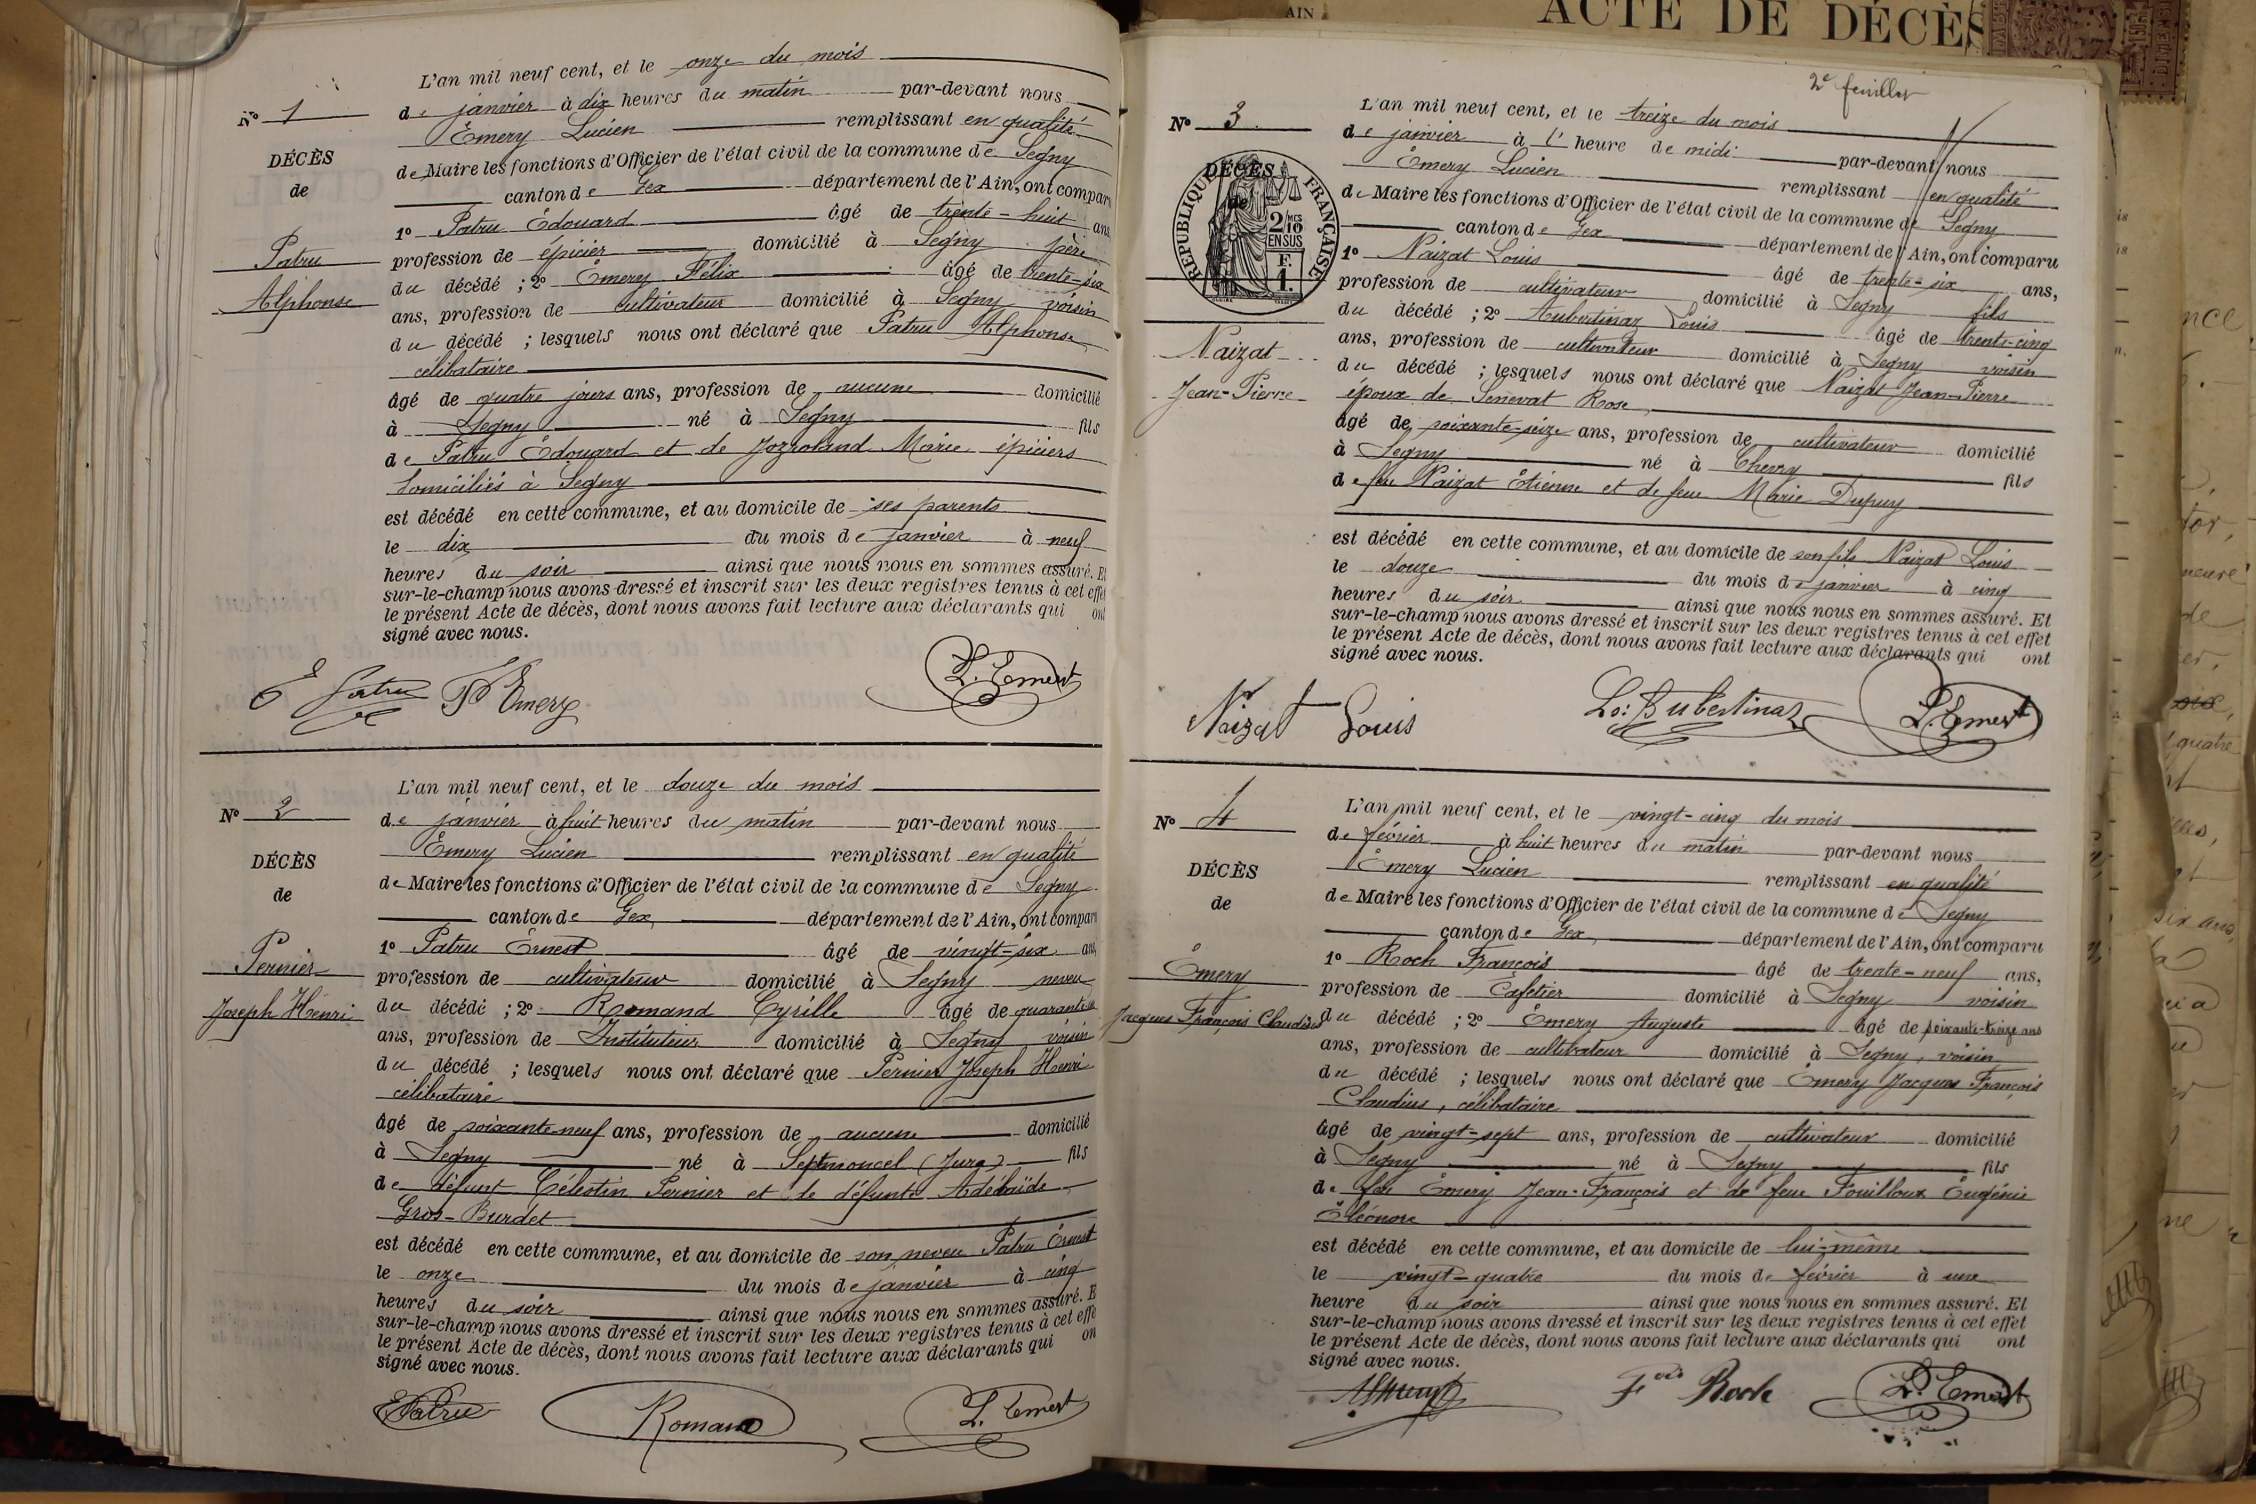 L'an mil neuf cent, et le onze du mois
N° 1
de janvier à dix heures du matin par-devant nous
Émery Lucien remplissant en qualité
DÉCÈS
de Maire les fonctions d'Officier de l'état civil de la commune de Segny
de
canton de Gex département de l'Ain, ont compar
1° Patru Édouard âgé de trente-huit ans
Patru
profession de épicier domicilié à Segny père
du décédé ; 2° Émery Félix âgé de trente-six
Alphonse
ans, profession de cultivateur domicilié à Segny voisin
du décédé ; lesquels nous ont déclaré que Patru Alphonse
célibataire
âgé de quatre jours ans, profession de aucune domicilié
à Segny né à Segny fils
de Patru Édouard et de Marie épiciers
domiciliés à Segny
est décédé en cette commune, et au domicile de ses parents
le dix du mois de janvier à neuf
heures du soir ainsi que nous nous en sommes assuré. E
sur-le-champ nous avons dressé et inscrit sur les deux registres tenus à cet effe
le présent Acte de décès, dont nous avons fait lecture aux déclarants qui ont
signé avec nous.
E Patru F Emery L. Emery
L'an mil neuf cent, et le douze du mois
N° 2
de janvier à huit heures du matin par-devant nous
Émery Lucien remplissant en qualité
DÉCÈS
de Maire les fonctions d'Officier de l'état civil de la commune de Segny
de
canton de Gex département de l'Ain, ont compar
1° Patru Ernest âgé de vingt-six ans
Pernier
profession de cultivateur domicilié à Segny neveu
Joseph Henri
du décédé ; 2° Romand Cyrille âgé de quarante
ans, profession de Instituteur domicilié à Segny voisin
du décédé ; lesquels nous ont déclaré que Pernier Joseph Henri
célibataire
âgé de soixante-neuf ans, profession de aucune domicilié
à Segny né à Septmoncel (Jura) fils
de défunt Célestin Pernier et de défunte Adélaïde
Gros-Burdet
est décédé en cette commune, et au domicile de son neveu Patru Ernest
le onze du mois de janvier à cinq
heures du soir ainsi que nous nous en sommes assuré. E
sur-le-champ nous avons dressé et inscrit sur les deux registres tenus à cet effe
le présent Acte de décès, dont nous avons fait lecture aux déclarants qui on
signé avec nous.
E Patru Romand L. Emery
AIN
ACTE DE DÉCÈS
2e feuillet
L'an mil neuf cent, et le treize du mois
N° 3
de janvier à l' heure de midi par-devant nous
Émery Lucien remplissant en qualité
DÉCÈS
de
RÉPUBLIQUE FRANÇAISE
2/10 MES EN SUS
F. 1.
de Maire les fonctions d'Officier de l'état civil de la commune de Segny
canton de Gex département de l'Ain, ont comparu
1° Naizat Louis âgé de trente-six ans,
profession de cultivateur domicilié à Segny fils
du décédé ; 2° Aubertinaz Louis âgé de trente-cinq
Naizat
ans, profession de cultivateur domicilié à Segny voisin
du décédé ; lesquels nous ont déclaré que Naizat Jean-Pierre
Jean-Pierre
époux de Senevat Rose
âgé de soixante-seize ans, profession de cultivateur domicilié
à Segny né à Chevry fils
de feu Naizat Étienne et de feue Marie Dupuy
est décédé en cette commune, et au domicile de son fils Naizat Louis
le douze du mois de janvier à cinq
heures du soir ainsi que nous nous en sommes assuré. Et
sur-le-champ nous avons dressé et inscrit sur les deux registres tenus à cet effet
le présent Acte de décès, dont nous avons fait lecture aux déclarants qui ont
signé avec nous.
Naizat Louis Ls Aubertinaz L. Emery
L'an mil neuf cent, et le vingt-cinq du mois
N° 4
de février à huit heures du matin par-devant nous
Émery Lucien remplissant en qualité
DÉCÈS
de Maire les fonctions d'Officier de l'état civil de la commune de Segny
de
canton de Gex département de l'Ain, ont comparu
1° Roch François âgé de trente-neuf ans,
Émery
profession de Cafetier domicilié à Segny voisin
Jacques François Claudius
du décédé ; 2° Émery Auguste âgé de soixante-treize ans
ans, profession de cultivateur domicilié à Segny, voisin
du décédé ; lesquels nous ont déclaré que Émery Jacques François
Claudius, célibataire
âgé de vingt-sept ans, profession de cultivateur domicilié
à Segny né à Segny fils
de feu Émery Jean-François et de feue Fouilloux Eugénie
Éléonore
est décédé en cette commune, et au domicile de lui-même
le vingt-quatre du mois de février à une
heure du soir ainsi que nous nous en sommes assuré. Et
sur-le-champ nous avons dressé et inscrit sur les deux registres tenus à cet effet
le présent Acte de décès, dont nous avons fait lecture aux déclarants qui ont
signé avec nous.
Fois Roch L. Emery